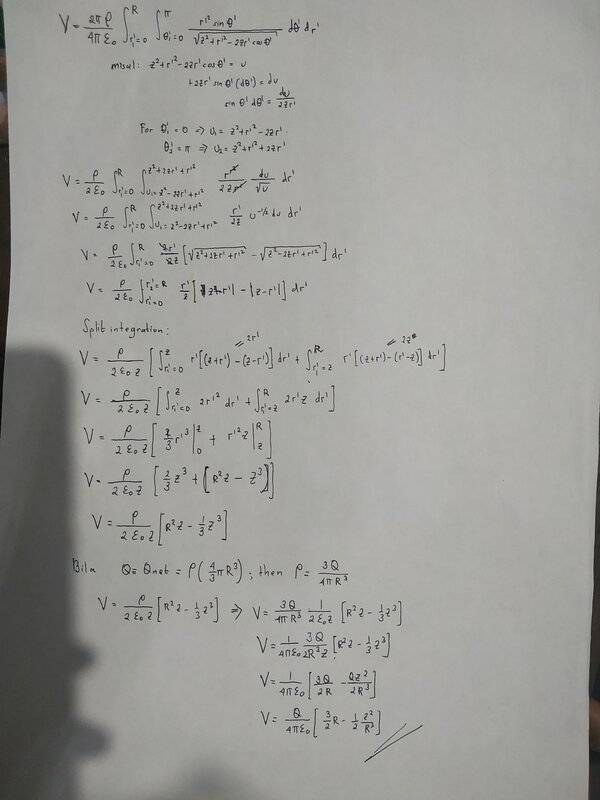 V = 2πρ/4πε₀ ∫_{r₁'=0}^{R} ∫_{θ₁'=0}^{π} r'² sin θ' / √(z²+r'²-2zr' cos θ') dθ' dr'
misal: z²+r'²-2zr' cos θ' = u
+2zr' sin θ' (dθ') = du
sin θ' dθ' = du/2zr'
For θ₁' = 0 ⇒ u₁ = z²+r'²-2zr'
θ₂' = π ⇒ u₂ = z²+r'²+2zr'
V = ρ/2ε₀ ∫_{r₁'=0}^{R} ∫_{u₁=z²-2zr'+r'²}^{z²+2zr'+r'²} r'²/2zr' du/√u dr'
V = ρ/2ε₀ ∫_{r₁'=0}^{R} ∫_{u₁=z²-2zr'+r'²}^{z²+2zr'+r'²} r'/2z u^{-1/2} du dr'
V = ρ/2ε₀ ∫_{r₁'=0}^{R} 2r'/2z [√(z²+2zr'+r'²) - √(z²-2zr'+r'²)] dr'
V = ρ/2ε₀ ∫_{r₁'=0}^{r₂'=R} r'/z [|z+r'| - |z-r'|] dr'
Split integration:
= 2r' = 2z
V = ρ/2ε₀z [∫_{r₁'=0}^{z} r'[(z+r')-(z-r')] dr' + ∫_{r₁'=z}^{R} r'[(z+r')-(r'-z)] dr']
V = ρ/2ε₀z [∫_{r₁'=0}^{z} 2r'² dr' + ∫_{r₁'=z}^{R} 2r'z dr']
V = ρ/2ε₀z [2/3 r'³|_0^z + r'²z|_z^R]
V = ρ/2ε₀z [2/3 z³ + [R²z - z³]]
V = ρ/2ε₀z [R²z - 1/3 z³]
Bila Q = Qnet = ρ(4/3 πR³); then ρ = 3Q/4πR³
V = ρ/2ε₀z [R²z - 1/3 z³] ⇒ V = 3Q/4πR³ 1/2ε₀z [R²z - 1/3 z³]
V = 1/4πε₀ 3Q/2R³z [R²z - 1/3 z³]
V = 1/4πε₀ [3Q/2R - Qz²/2R³]
V = Q/4πε₀ [3/2 R - 1/2 z²/R³]